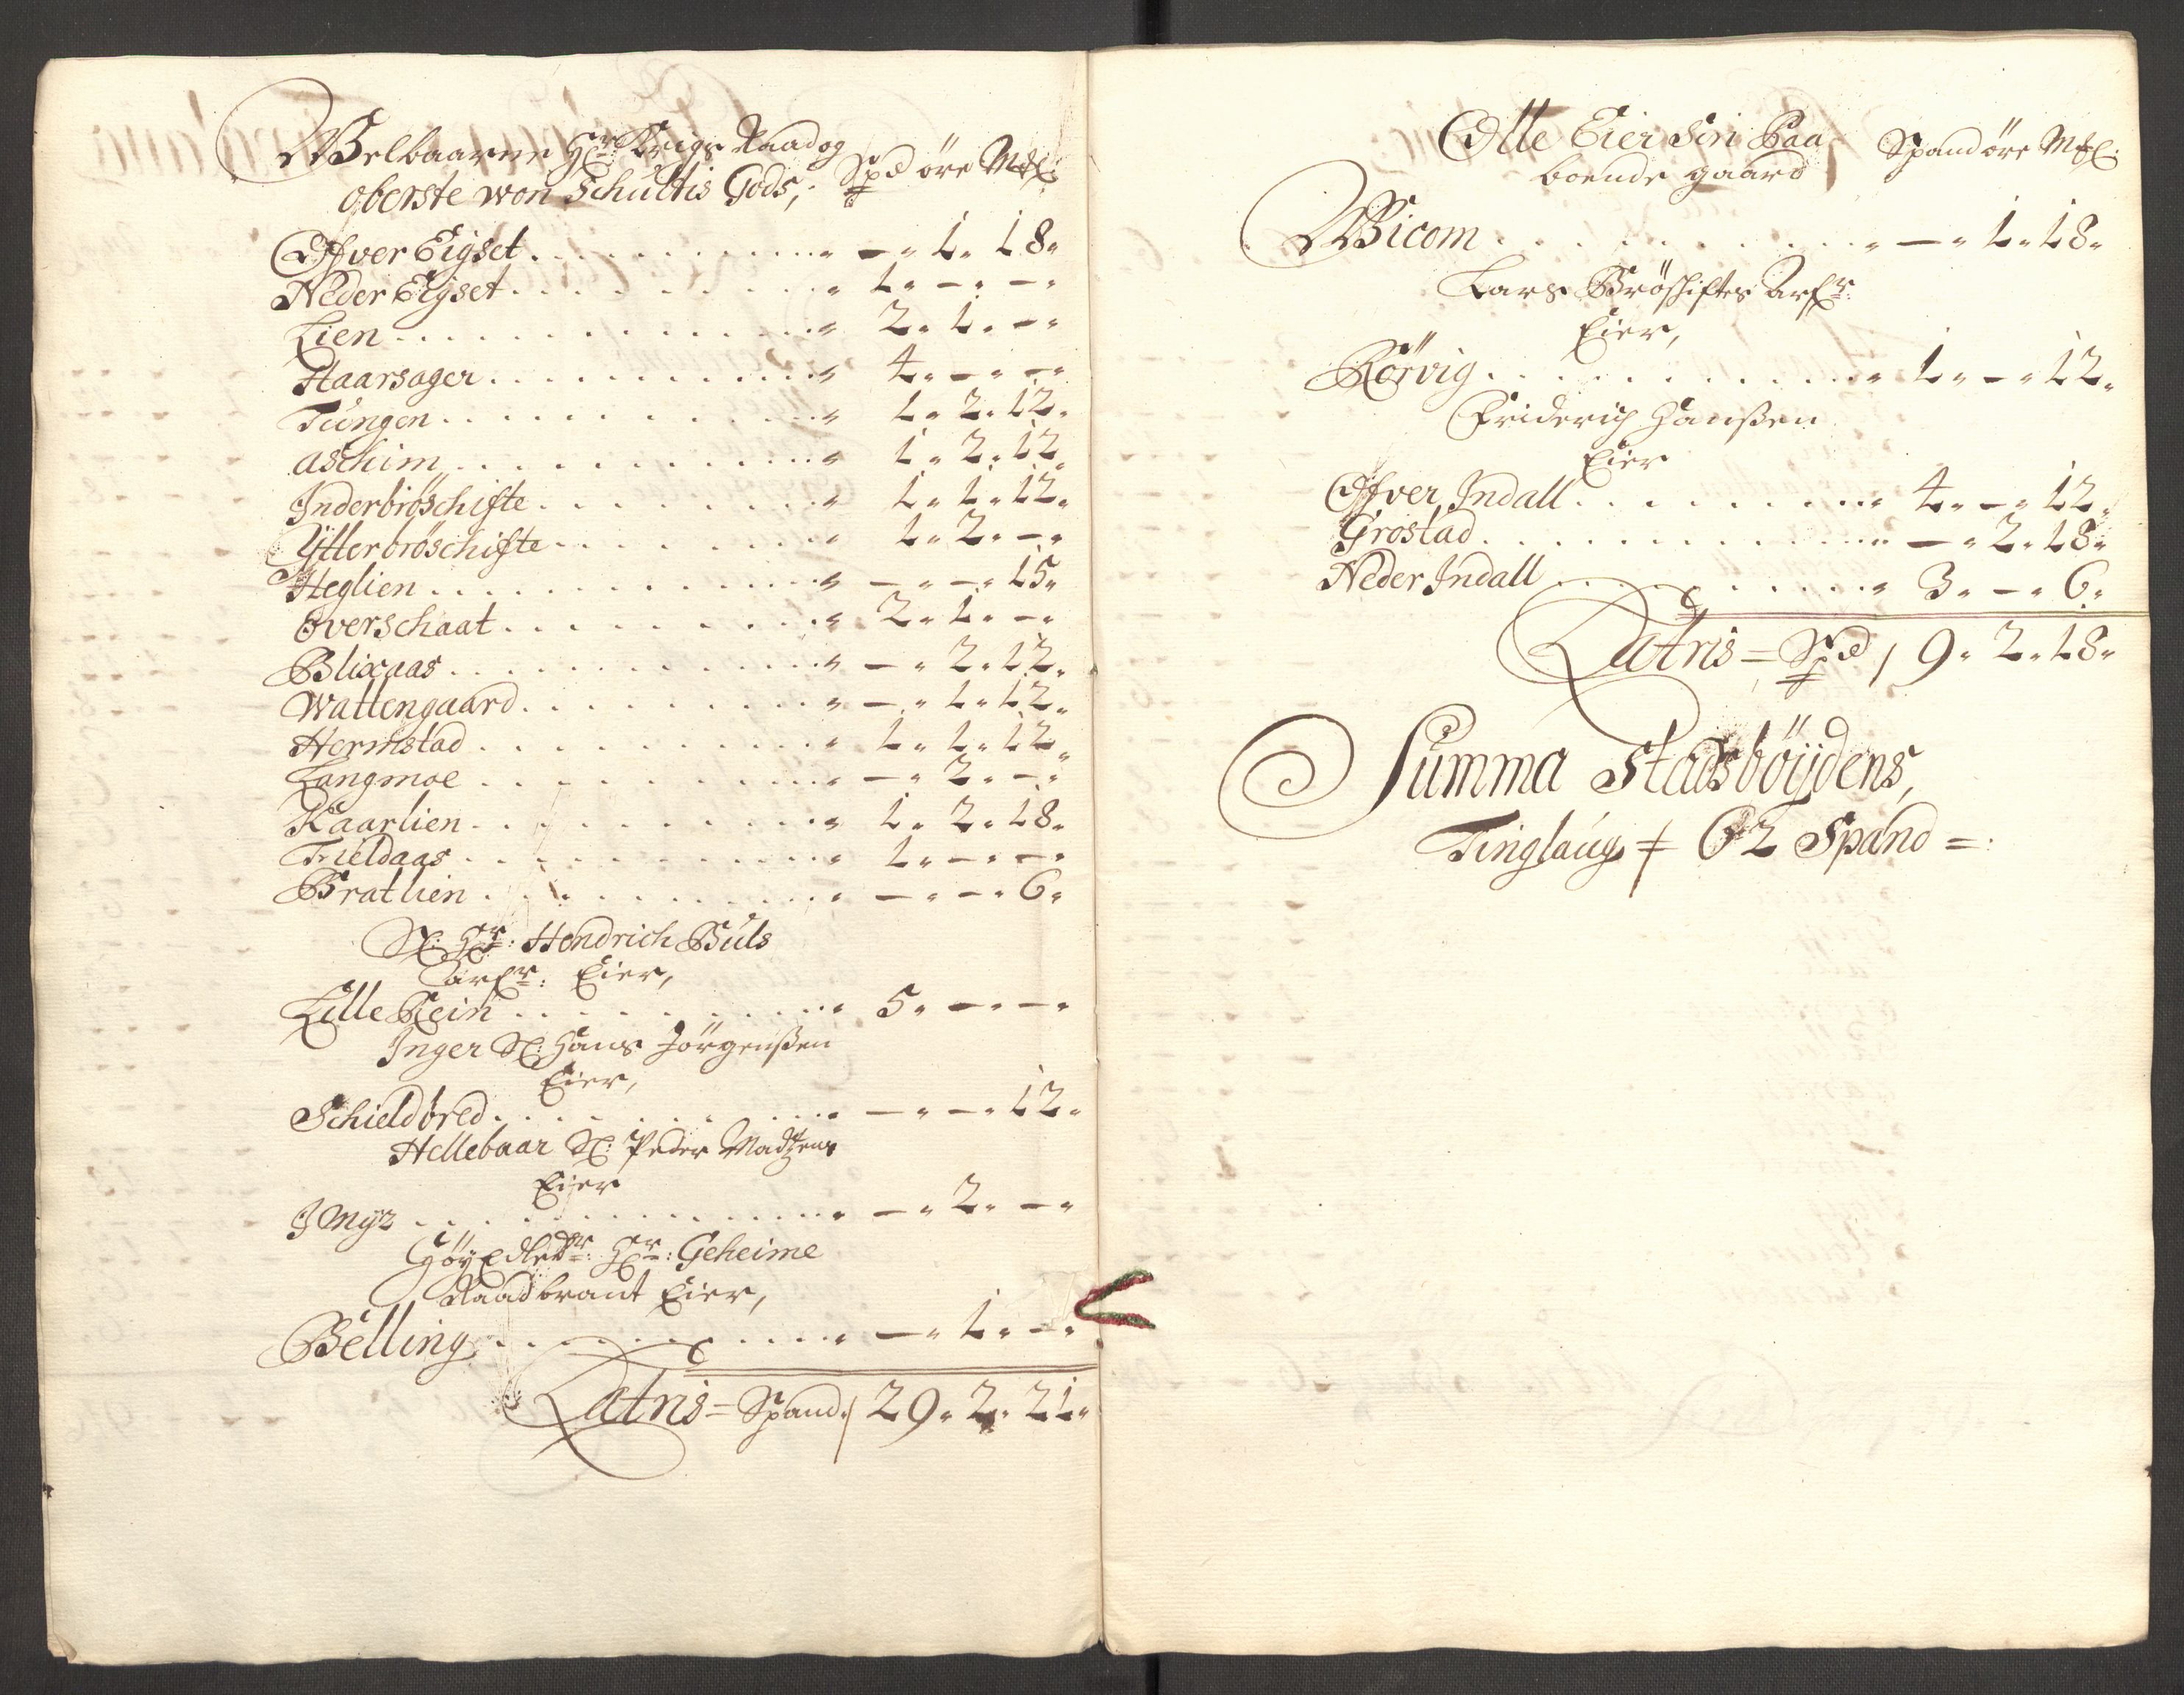 Welbaarne Hr: Krigs Raad og
oberste won Schultis Gods, Spd öre Mkl:
Offver Eigset - 1 - 18
Neder Eigset 1 - - - -
Lien 2 - 1 - -
Haarsager 4 - - - -
Tungen 1 - 2 - 12
aschim 1 - 2 - 12
Inderbröschifte 1 - 1 - 12
Ytterbröschifte 1 - 2 - -
Heglien - - - 15
Overschaat 2 - 1 - -
Blixaas - - 2 - 12
Wattengaard - - 1 - 12
Hermstad 1 - 1 - 12
Langmoe - - 2 - -
Kaarlien 1 - 2 - 18
Fieldaas 1 - - - -
Bratlien - - - 6
Sl: Hr: Hendrich Buls
arfr: Eier,
Lille Rein 5 - - - -
Inger Sl: Hans Jörgenßen
Eier,
Schieldbred - - - 12
Hellebaar Sl: Peder Madtzens
Eier
Jmyr - - 2 - -
Höyedle Hr: Geheime
Raad brant Eier,
Belling - - 1 - -
Latris = Spand / 29 - 2 - 21
Olle Eier sin Paa
boende gaard Spand öre Mkl:
Wicom - - 1 - 18
Lars Bröshiftes Arfr:
Eier,
Rörvig 1 - - - 12
Friderich Hanßen
Eier
Offver Indall 4 - - - 12
Grostad - - 2 - 18
Neder Indall 3 - - - 6
Latris = Spd / 9 - 2 - 18
Summa Stadsböydens,
Tinglaug 62 Spand =